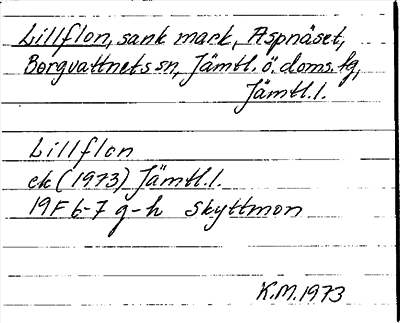 Lillflon, sank mark, Aspnäset,
Borgvattnets sn, Jämtl. ö. doms. fg,
Jämtl. l.
Lillflon
ek (1973) Jämtl. l.
19F 6-7 g-h Skyttmon
K.M. 1973